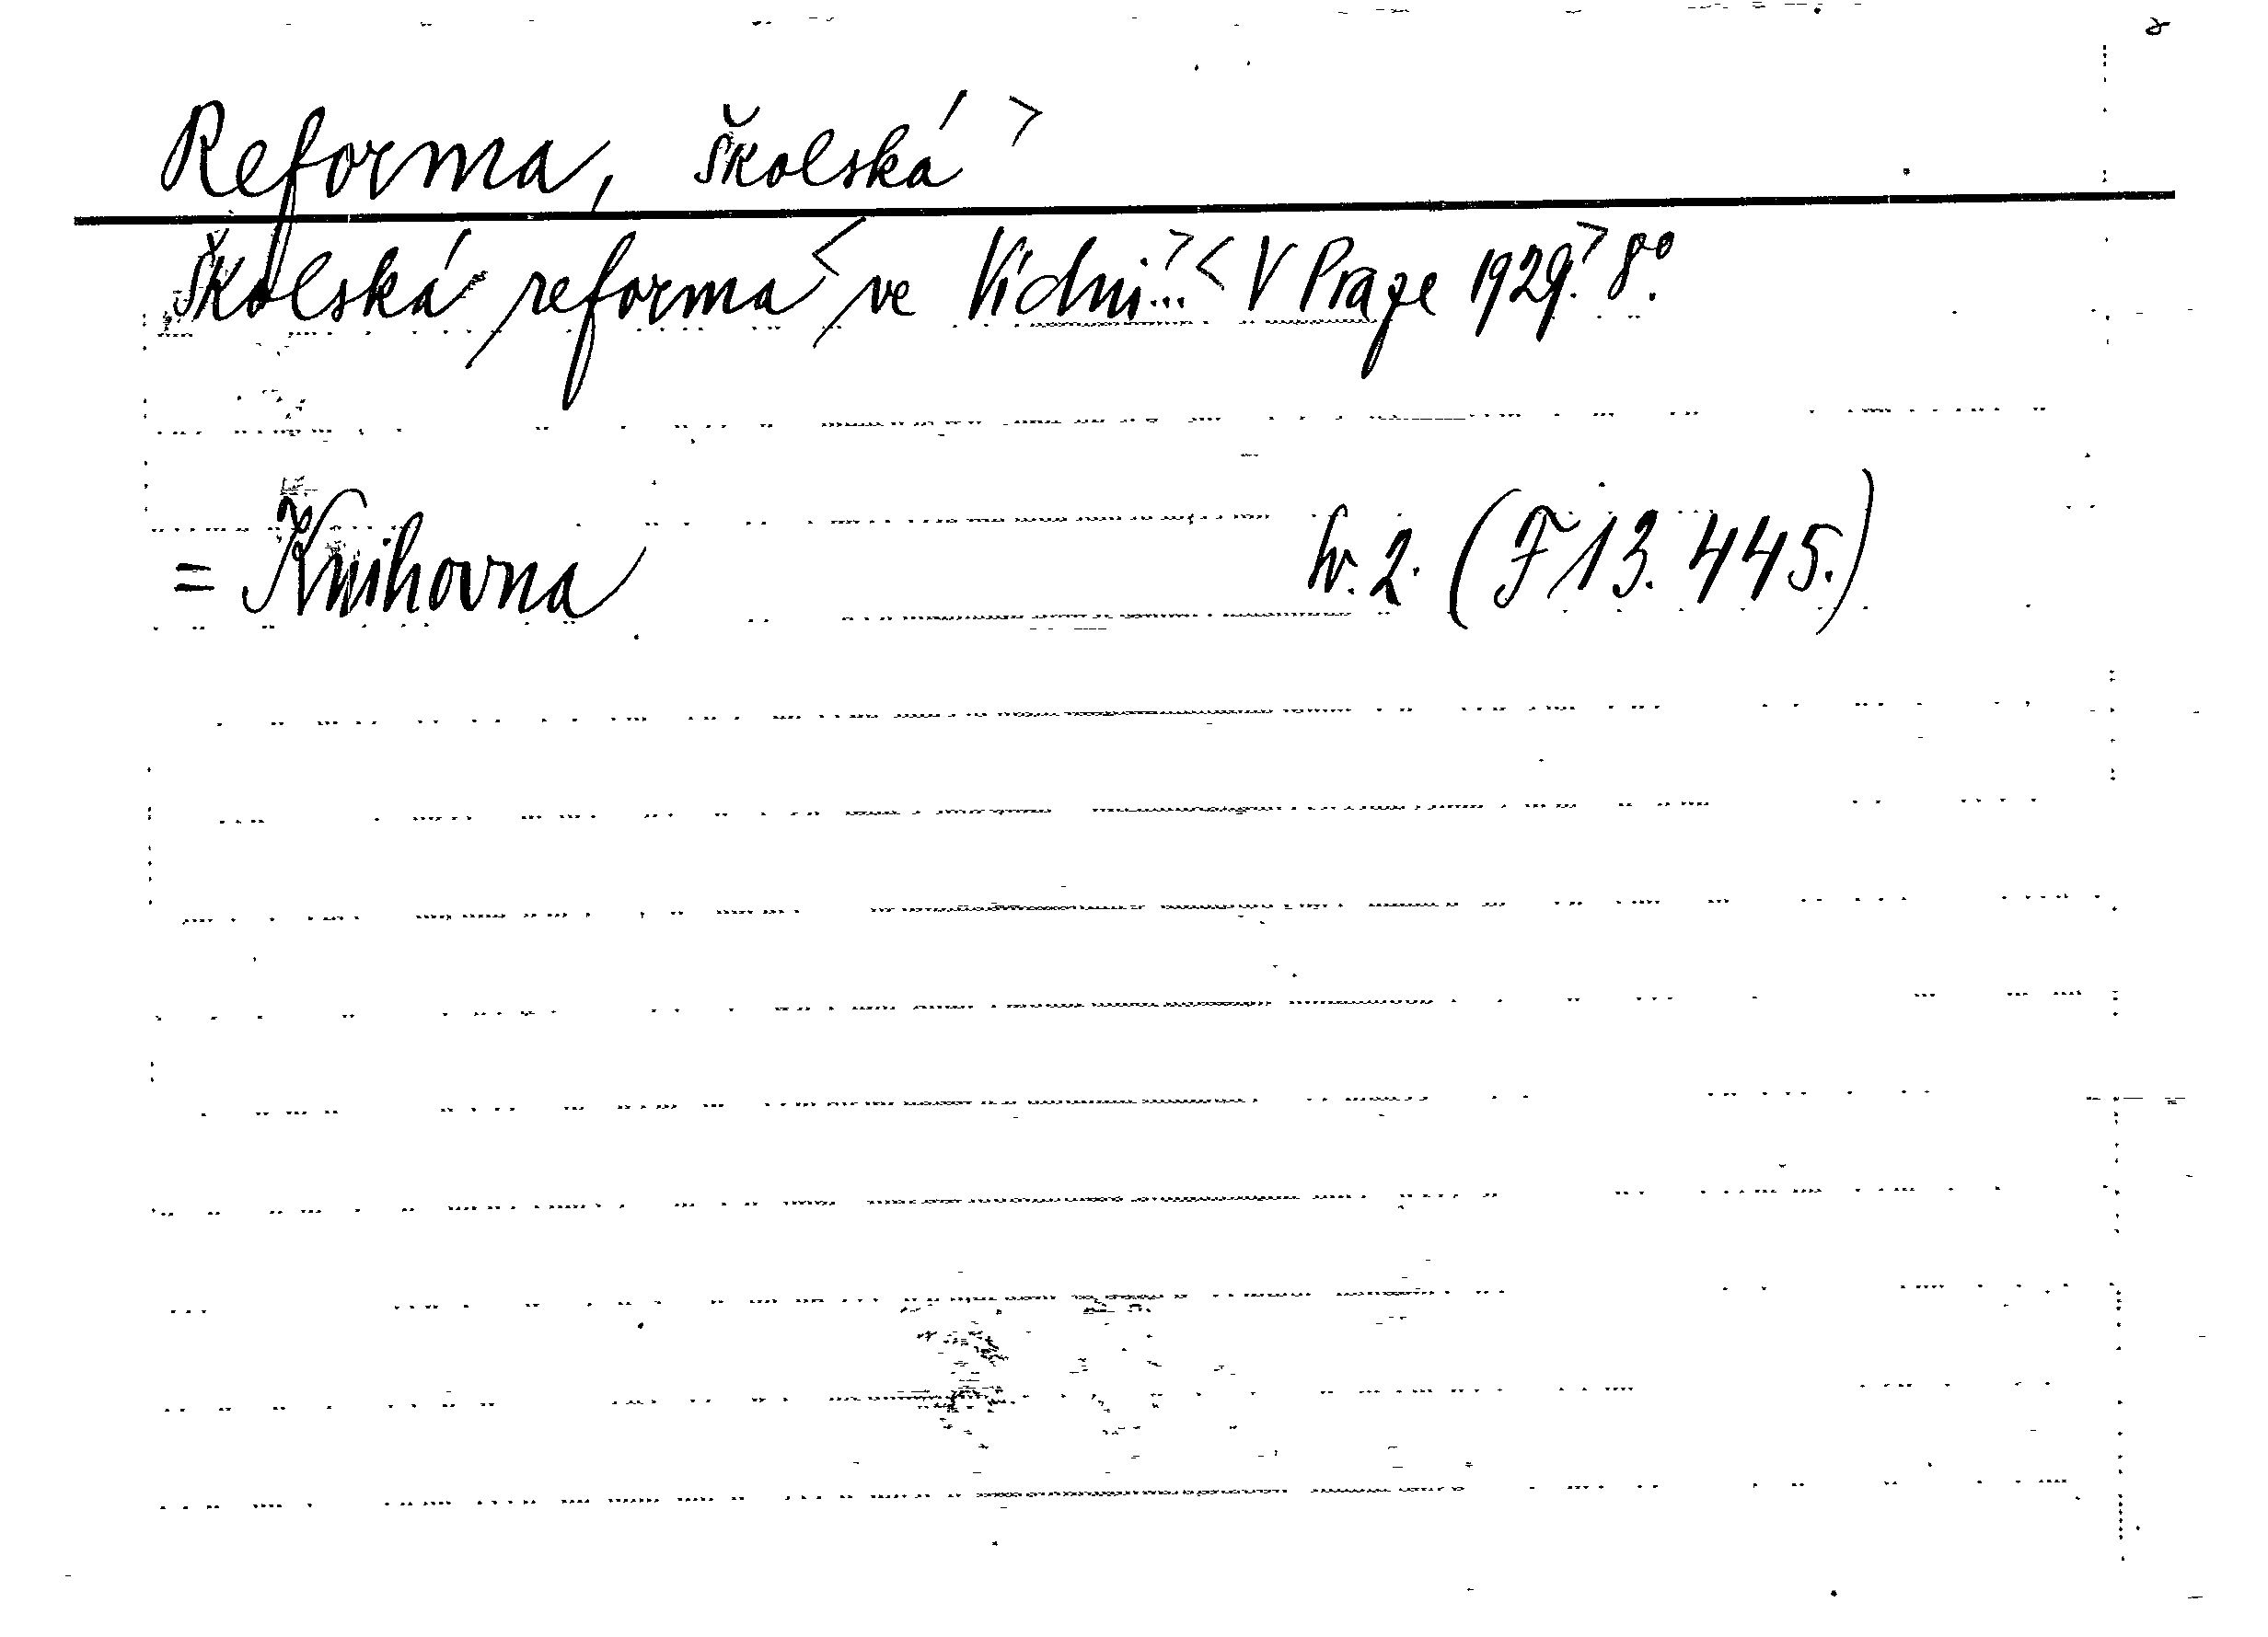 Reforma, školská >
Školská reforma < ve Vídni...> < V Praze 1929.> 8°.
= Knihovna sv. 2. (F 13.445.)